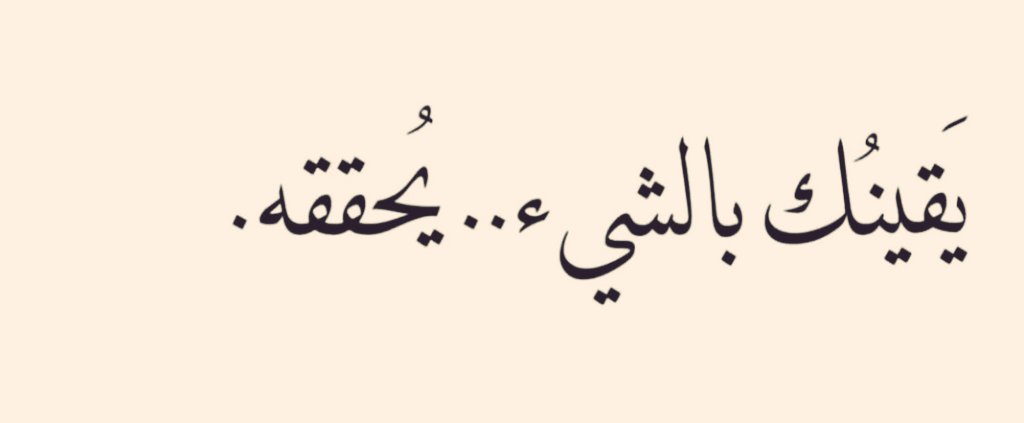 يَقينُك بالشيء.. يُحققه.